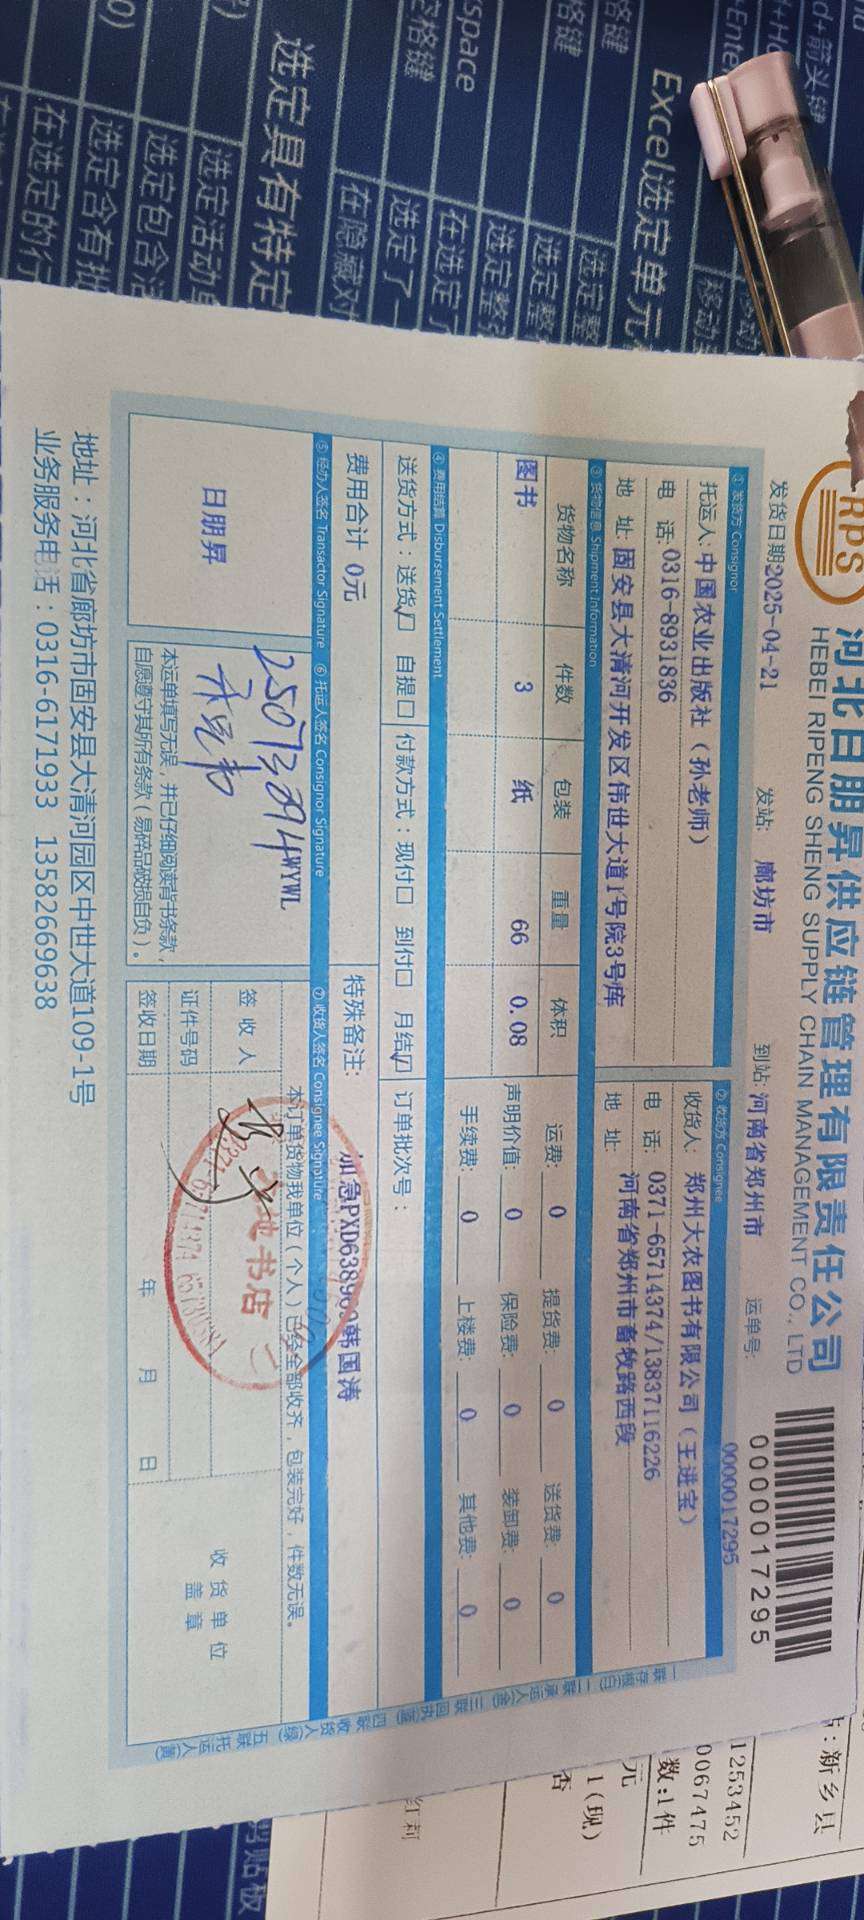 RPS
河北日朋昇供应链管理有限责任公司
HEBEI RIPENG SHENG SUPPLY CHAIN MANAGEMENT CO., LTD
0000017295
发货日期2025-04-21 发站: 廊坊市 到站: 河南省郑州市 运单号: 0000017295
① 发货方 Consignor
托运人: 中国农业出版社（孙老师）
电 话: 0316-8931836
地 址: 固安县大清河开发区伟世大道1号院3号库
② 收货方 Consignee
收货人: 郑州大农图书有限公司（王进宝）
电 话: 0371-65714374/13837116226
地 址: 河南省郑州市畜牧路西段
③ 货物信息 Shipment Information
货物名称 件数 包装 重量 体积
图书 3 纸 66 0.08
运费: 0 提货费: 0 送货费: 0
声明价值: 0 保险费: 0 装卸费: 0
手续费: 0 上楼费: 0 其他费: 0
④ 费用结算 Disbursement Settlement
送货方式：送货☑ 自提☐ 付款方式：现付☐ 到付☐ 月结☑ 订单批次号：
费用合计 0元 特殊备注: 加急PXD638969韩国涛
⑤ 经办人签名 Transactor Signature ⑥ 托运人签名 Consignor Signature ⑦ 收货人签名 Consignee Signature
日朋昇
本运单填写无误，并已仔细阅读背书条款，
自愿遵守其所有条款（易碎品破损自负）。
本订单货物我单位（个人）已经全部收齐，包装完好，件数无误。
签 收 人
证件号码
签收日期 年 月 日
收 货 单 位
盖 章
地书店
一联存根(白) 二联承运人(金) 三联回执(蓝) 四联收货人(绿) 五联托运人(黄)
地址：河北省廊坊市固安县大清河园区中世大道109-1号
业务服务电话：0316-6171933 13582669638
Excel选定单元
选定具有特定
选定活动
选定包含
选定含有批
在选定的行
在隐藏对
选定了一
在选定了
选定整
space
空格键
d+箭头键
移动
新乡县
1253452
0067475
数:1件
元
1(现)
否
红莉
剪贴板